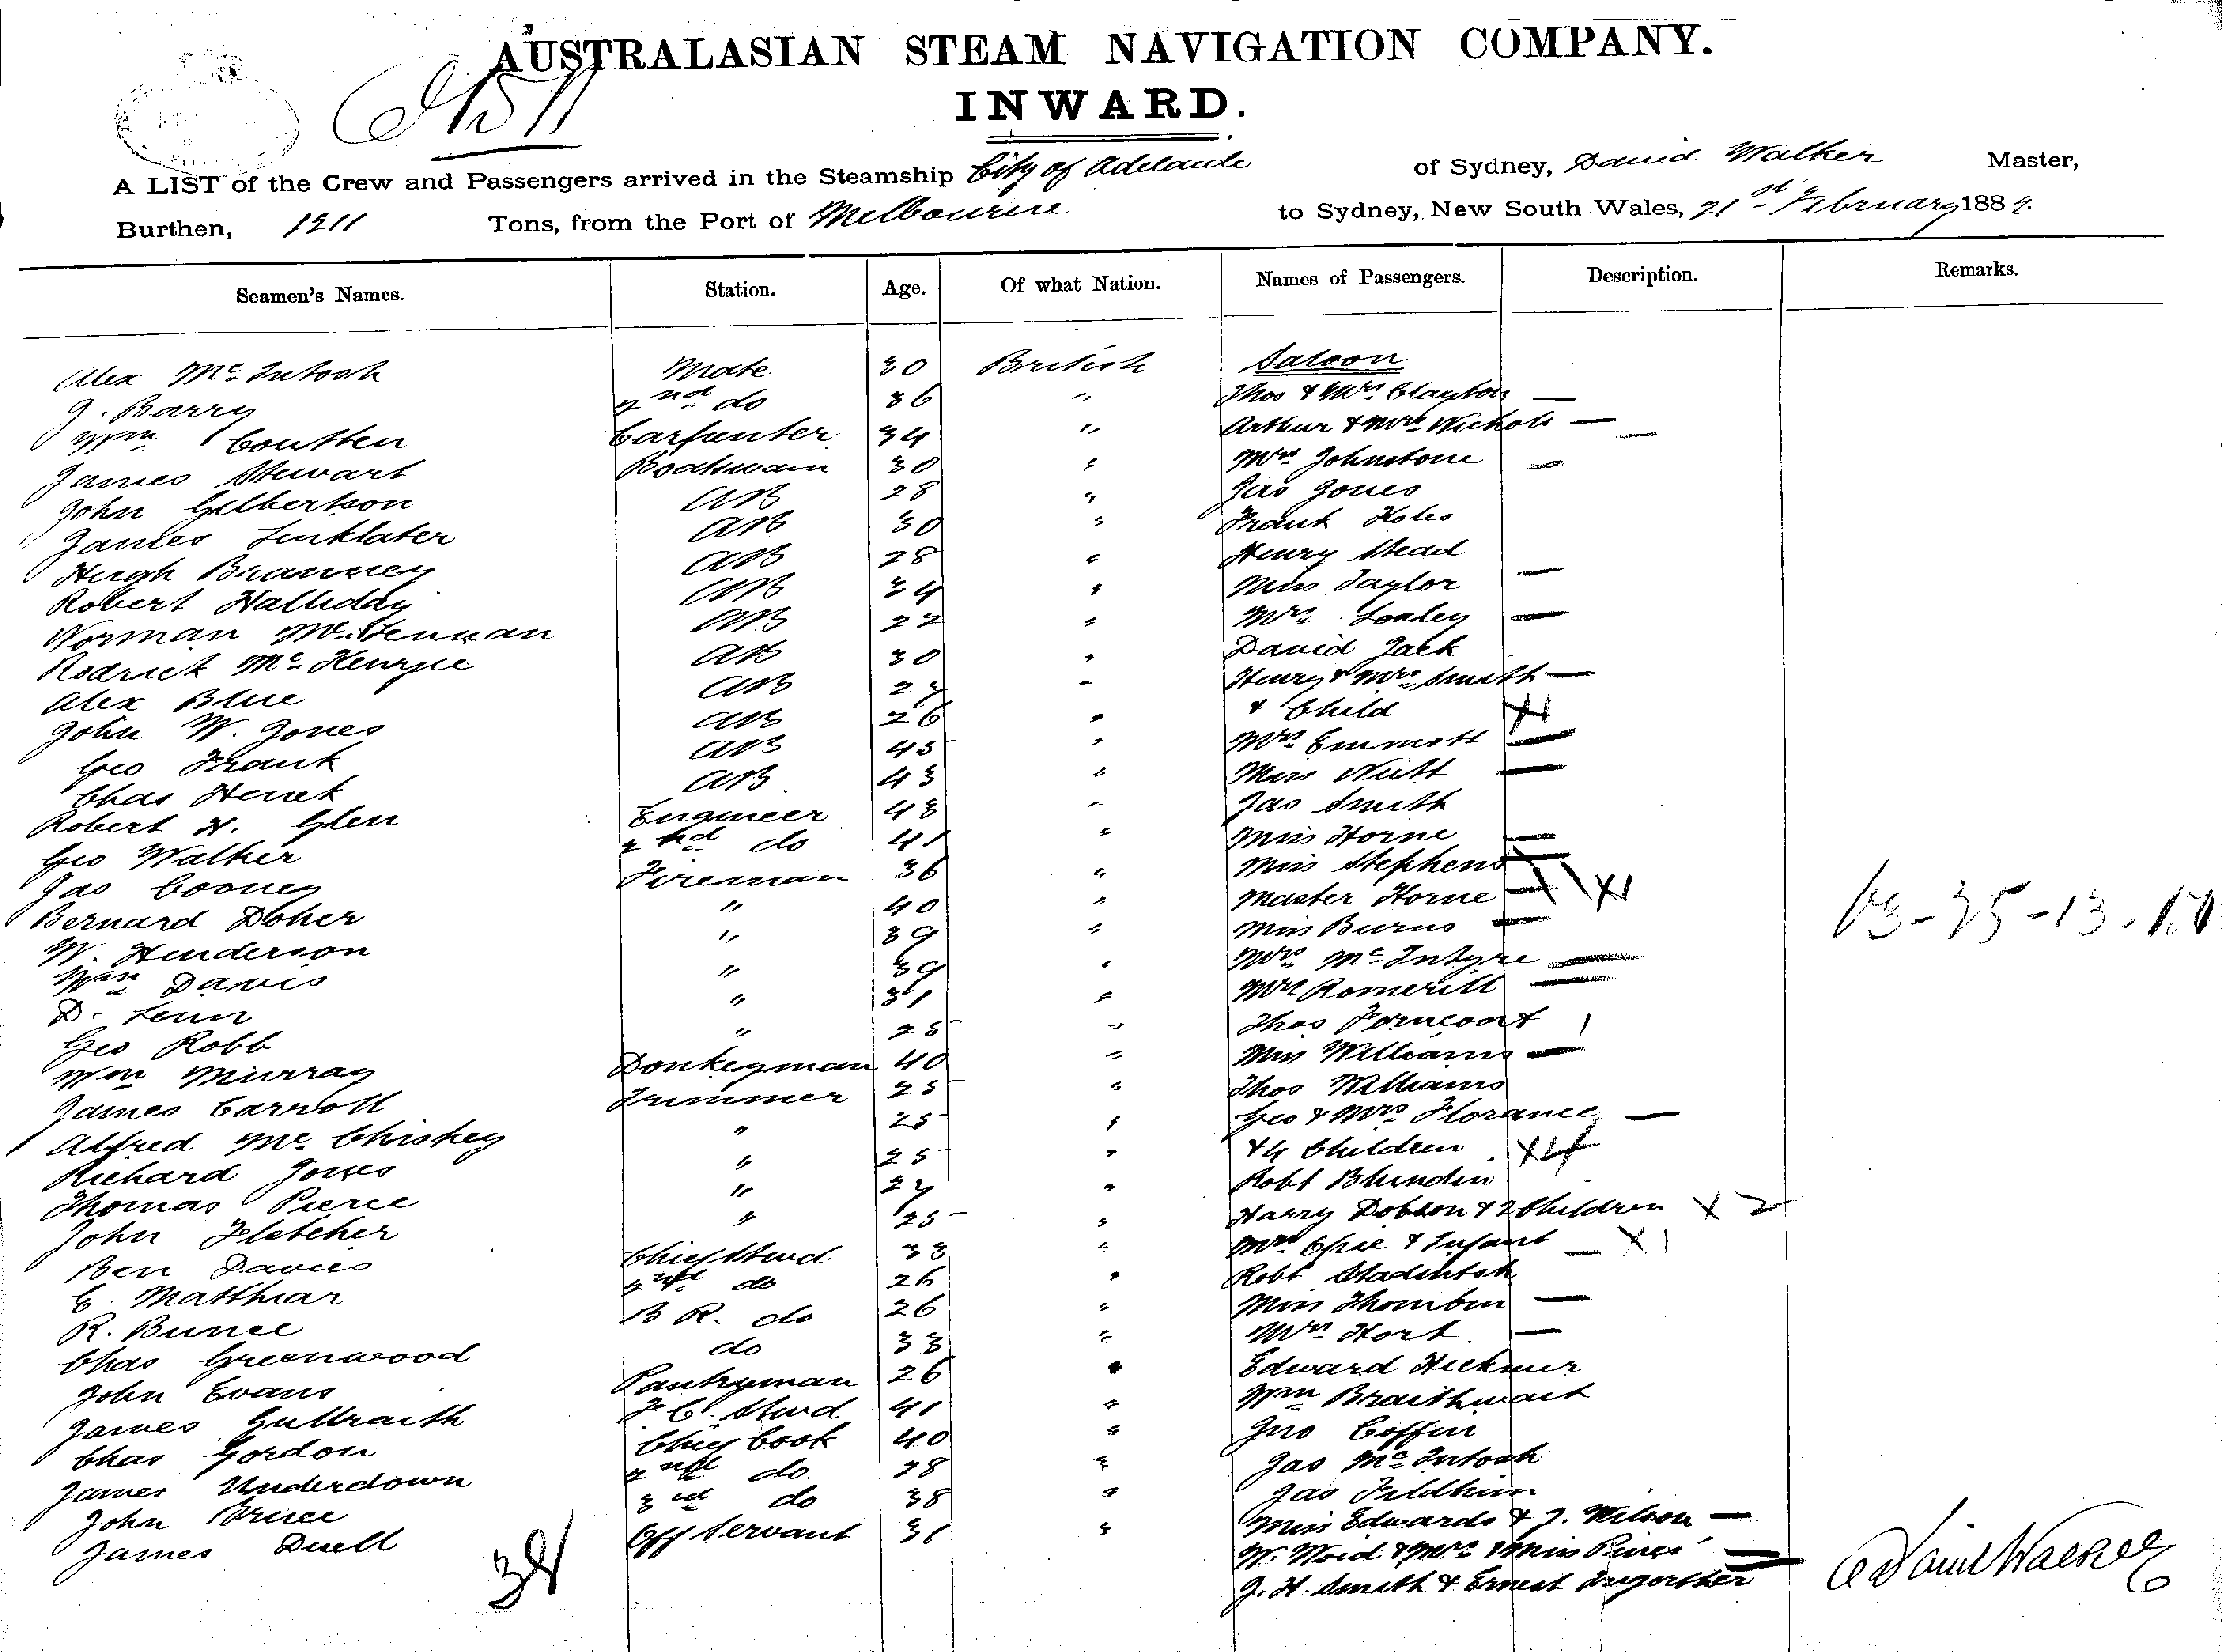 AUSTRALASIAN STEAM NAVIGATION COMPANY.
INWARD.
A LIST of the Crew and Passengers arrived in the Steamship City of Adelaide of Sydney, David Walker Master,
Burthen, 1211 Tons, from the Port of Melbourne to Sydney, New South Wales, 21st February 188
Seamen's Names. Station. Age. Of what Nation. Names of Passengers. Description. Remarks.
Alex McIntosh Mate 30 British Saloon
J. Barry 2nd do 36 " Thos & Mrs Clayton —
Wm Coutten Carpenter 34 " Arthur & Mrs Nichols —
James Stewart Boatswain 30 " Mrs Johnstone —
John Gilbertson AB 28 " Jas Jones
James Linklater AB 30 " Frank Holes
Hugh Branney AB 28 " Henry Stead
Robert Halliday AB 34 " Miss Taylor —
Norman McLennan AB 22 " Mrs Loxley —
Rodrick McKenzie AB 30 " David Jack
Alex Blue AB 27 " Henry & Mrs Smith —
John W. Jones AB 26 " & Child X1
Geo Frank AB 45 " Mrs Emmott —
Chas Henek AB 43 " Miss Nutt —
Robert H. Glen Engineer 48 " Jas Smith
Geo Walker 2nd do 41 " Miss Horne —
Jas Cooney Fireman 36 " Miss Stephens
Bernard Doher " 40 " Master Horne X1
W. Henderson " 39 " Miss Burns —
Wm Davis " 39 " Mrs McIntyre —
D. Lenn " 31 " Mrs Romerill —
Geo Robb " 25 " Thos 1
Wm Murray Donkeyman 40 " Miss Williams —
James Carroll Trimmer 25 " Thos Williams
Alfred Mc Chiskey " 25 " Geo & Mrs Florance —
Richard Jones " 25 " & 4 Children X4
Thomas Pierce " 27 " Robt Blunden
John Fletcher " 25 " Harry Dobson & 2 Children X 2
Ben Davies Chief Stwd 33 " Mrs Opie & Infant — X1
C. Matthiar 2nd do 26 " Robt
R. Bunce B R. do 26 " Miss Thombin —
Chas Greenwood do 33 " Mrs Hort —
John Evans Pantryman 26 " Edward Hickmer
James Gullraith F. C. Stwd 41 " Wm Braithwait
Chas Gordon Chief Cook 40 " Jno Coffin
James Underdown 2nd do 28 " Jas McIntosh
John Bruce 3rd do 38 " Jas Fildhim
James Duell Off Servant 31 " Miss Edwards & J. Wilson —
38 W. Woid & Mrs & Miss
J. H. Smith & Ernest
David Walker